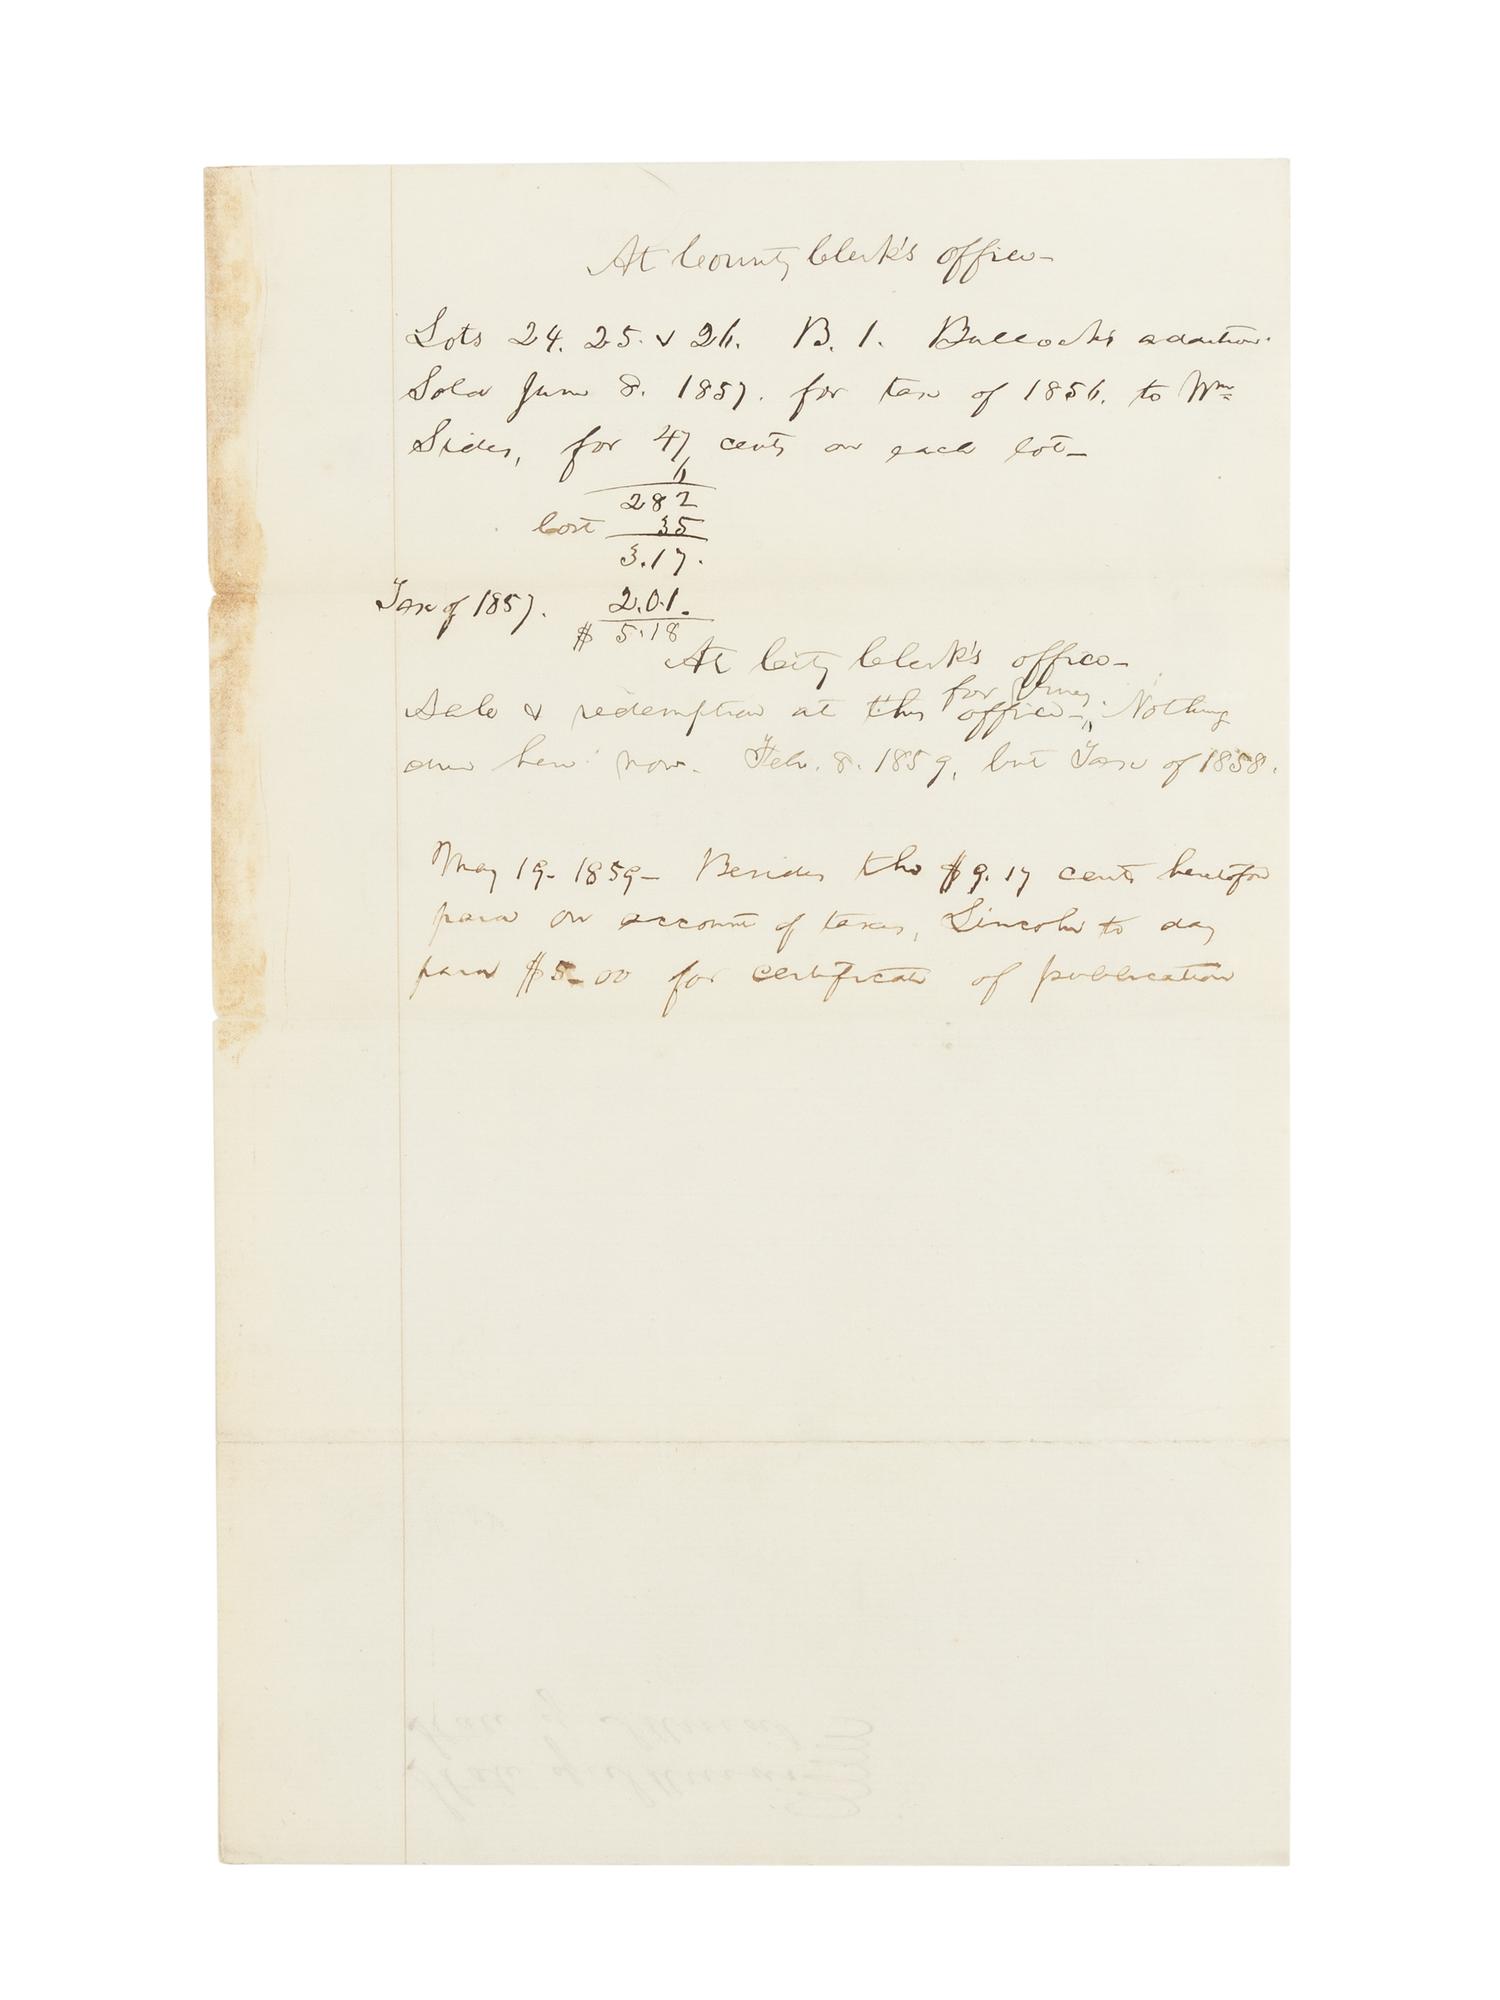 At County Clerk's office—
Lots 24. 25. & 26. B. 1. Bullock's addition.
Sold June 8. 1857. for tax of 1856. to Wm
Sides, for 47 cents on each lot—
6
282
Cost 35
3.17.
Tax of 1857. 2.01.
$ 5.18
At City Clerk's office—
for
Sale & redemption at this office—; Nothing
due here now. Feb. 8. 1859, but Tax of 1858.
May 19- 1859— Besides the $9.17 cents heretofore
paid on account of taxes, Lincoln to day
paid $5-00 for certificate of publication
State of Illinois
State of Illinois